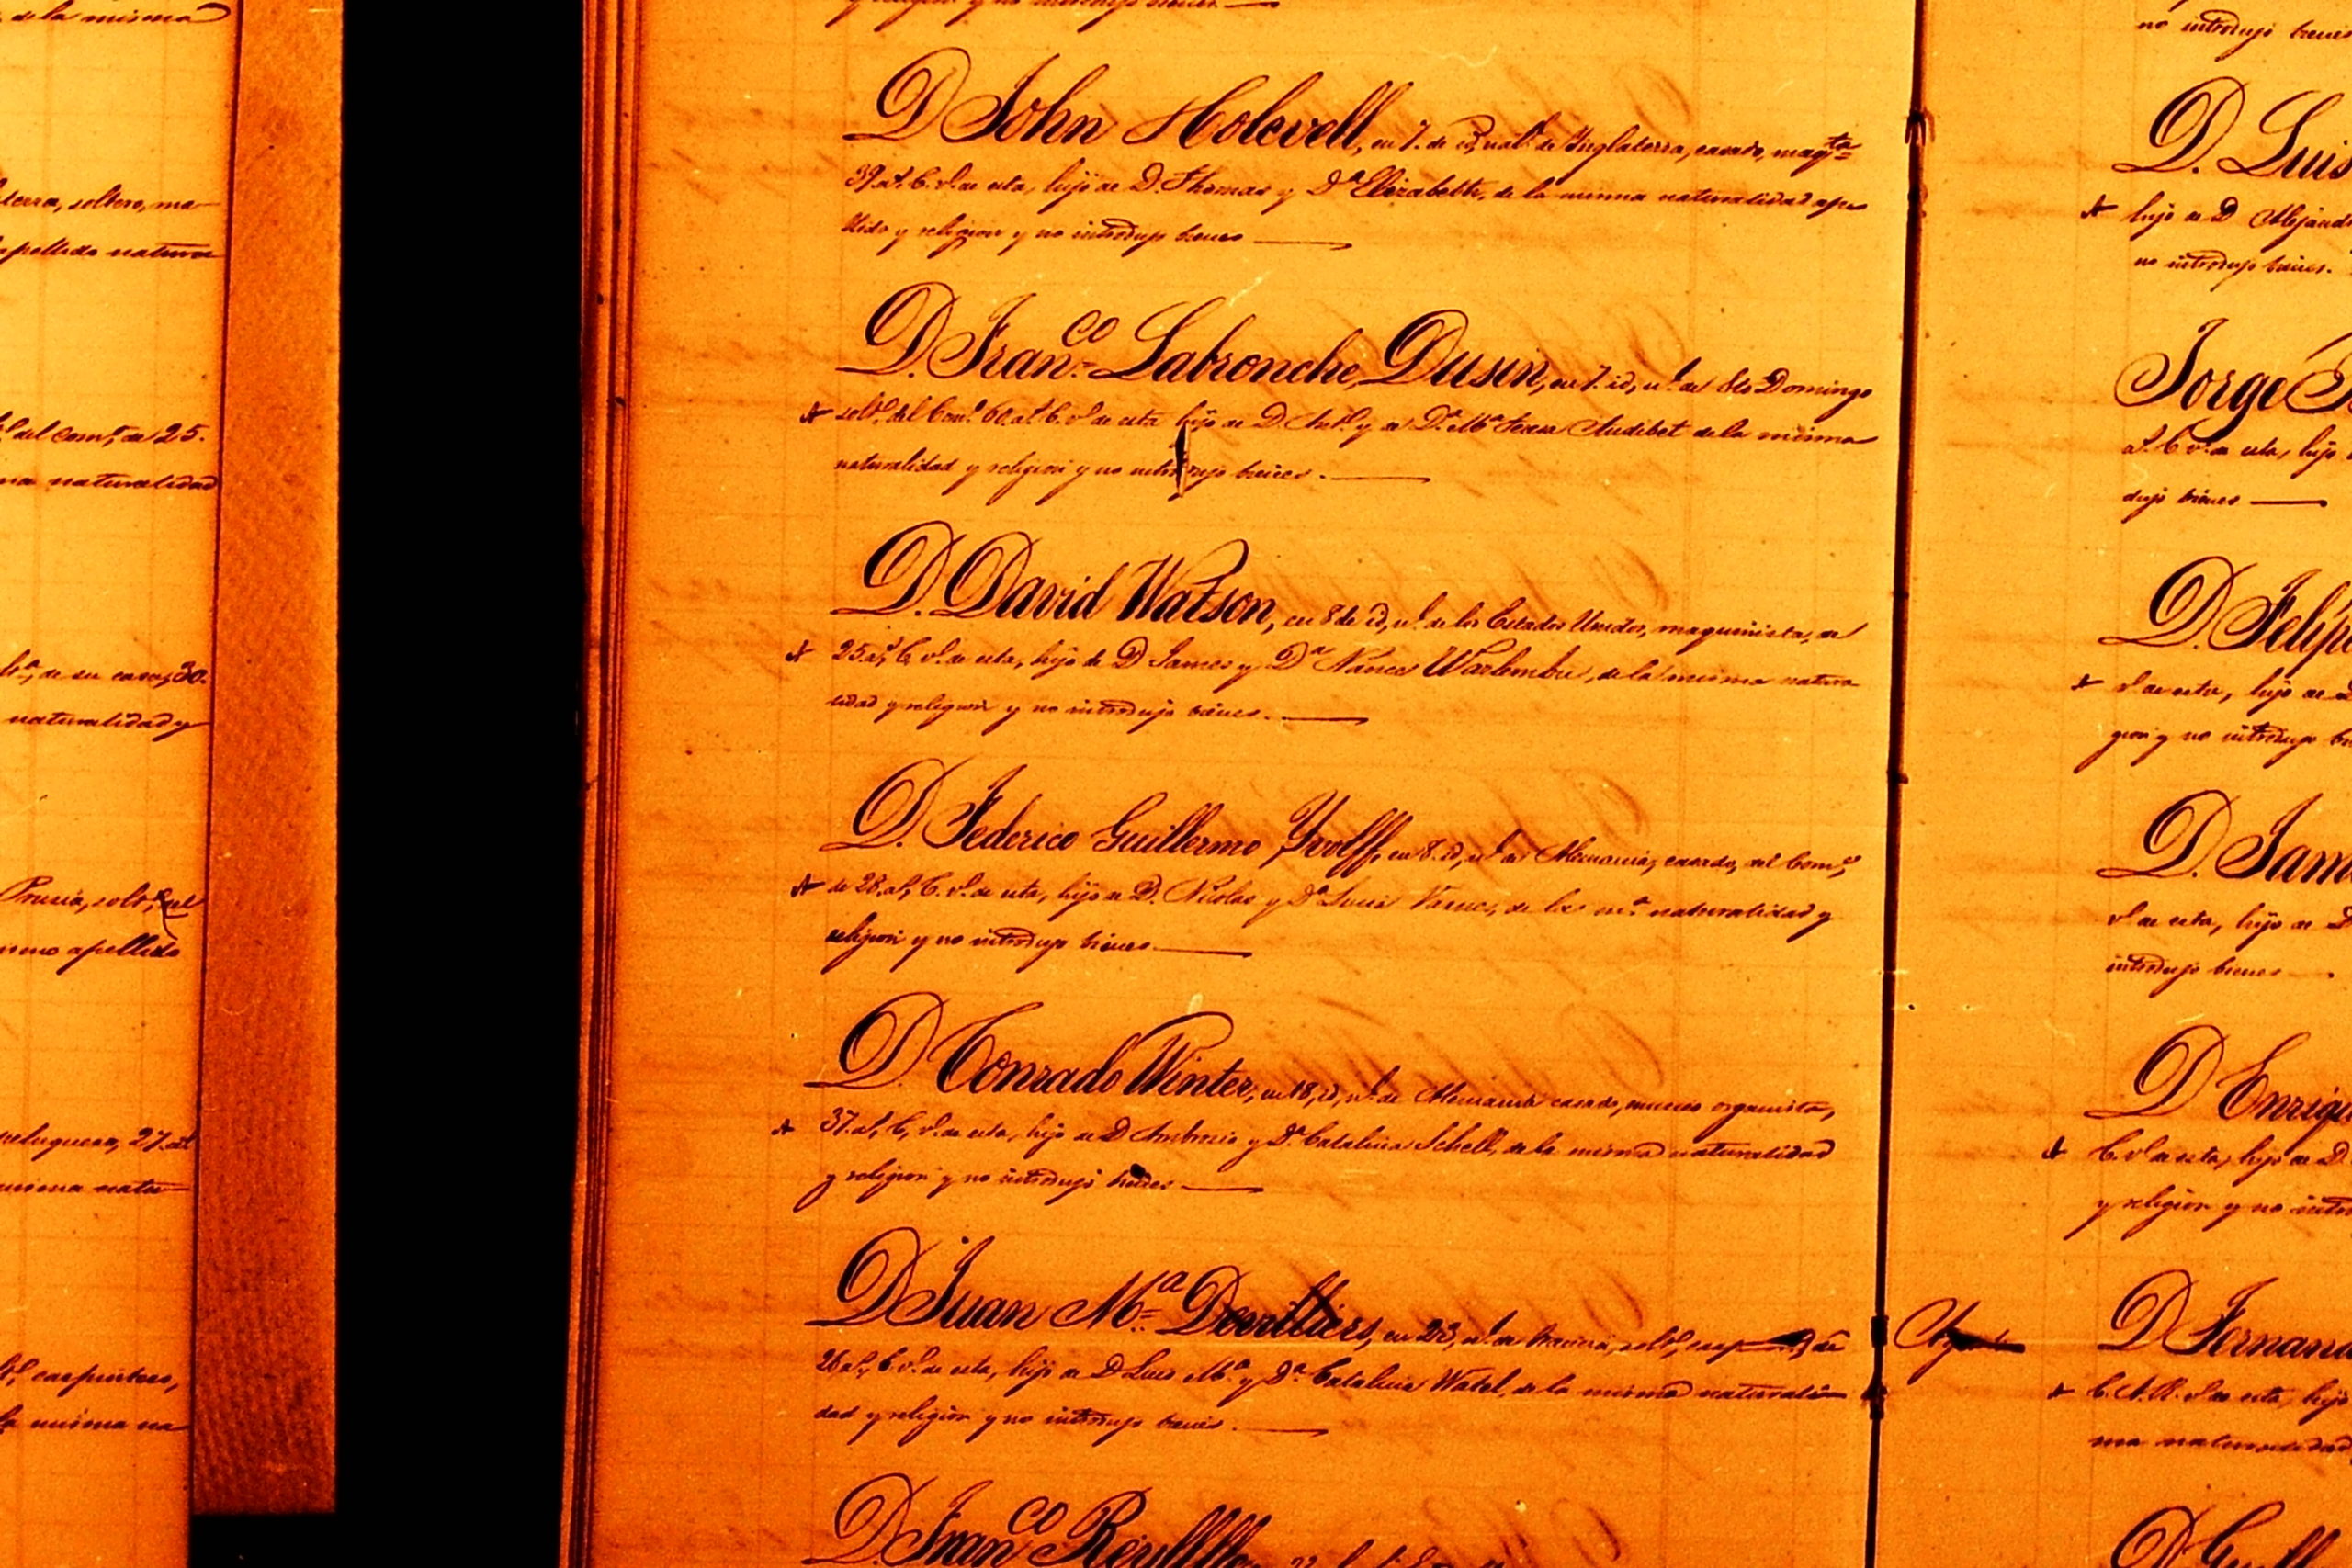 de la misma
terra, soltero, ma
apellido natura
del Com.º, de 25.
ma naturalidad
de su casa, 30.
naturalidad y
Prusia, solt.º, del
mismo apellido
peluquero, 27. a.s
misma natu
carpintero,
la misma na
y religion y no introdujo bienes.
D John Holevell, en 7. de id, nat.l de Inglaterra, casado, maq.ta
39. a.s C. v.º de esta, hijo de D. Thomas y D.ª Elizabeth, de la misma naturalidad ape
llido y religion y no introdujo bienes
D. Fran.co Labronche Dusin, en 7. id, n.l de Sto Domingo
solt.º, del Com.º 60. a.s C. v.º de esta hijo de D. y de D.ª M.ª Teresa Audibet de la misma
naturalidad y religion y no introdujo bienes.
D. David Watson, en 8 de id, n.l de los Estados Unidos, maquinista, de
25. a.s, C. v.º de esta, hijo de D James y D.ª Nances, de la misma natura
lidad y religion y no introdujo bienes.
D. Federico Guillermo Wolff, en 8. id, n.l de Alemania, casado, del Com.º,
de 28. a.s, C. v.º de esta, hijo de D. Nicolas y D.ª, de la m.ª naturalidad y
religion y no introdujo bienes.
D. Conrado Winter, en 18, id, n.l de Alemania casado, musico organista,
37. a.s, C, v.º de esta, hijo de D Ambrosio y D.ª Catalina Schell, de la misma naturalidad
y religion y no introdujo bienes
D Juan M.ª Devilliers, en 23, n.l de Baviera, solt.º, de
26 a.s, C. v.º de esta, hijo de D Luis M.ª y D.ª Catalina Watel, de la misma naturali
dad y religion y no introdujo bienes.
D. Fran.co
no introdujo bienes
D. Luis
hijo de D Alejand
no introdujo bienes.
Jorge
a.s C v.º de esta, hijo
dujo bienes
D. Felip
v.º de esta, hijo de
gion y no introdujo
D. Jam
v.º de esta, hijo de
introdujo bienes
D Enriq
C. v.º de esta, hijo de D
y religion y no intro
D Fernan
C. A. R. v.º de esta, hijo
ma naturalidad
D